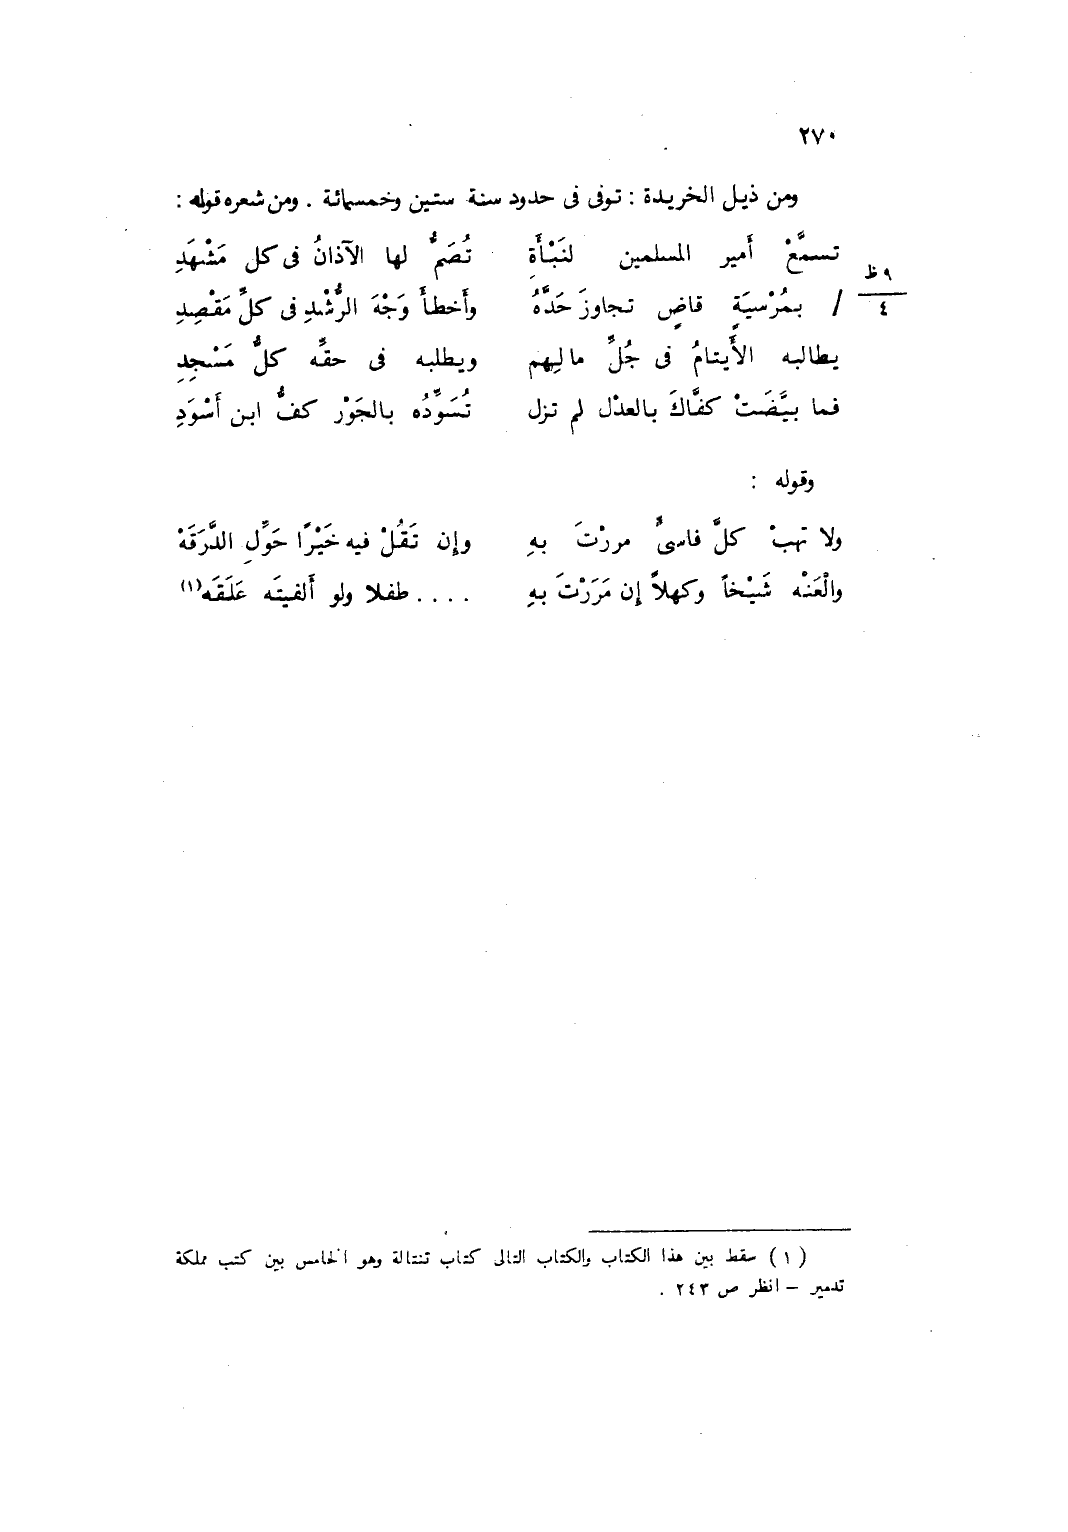 ٢٧٠
ومن ذيل الخريدة : توفى فى حدود سنة ستين وخمسمائة . ومن شعره قوله :
تسمَّعْ أمير المسلمين لنَبْأَةِ تُصَمُّ لها الآذانُ فى كل مَشْهَدِ
٩ ظ
٤
/ بمُرْسيَةٍ قاضٍ تجاوزَ حَدَّهُ وأَخطأَ وَجْهَ الرُّشْدِ فى كلِّ مَقْصِدِ
يطالبه الأَيتامُ فى جُلِّ مالِهم ويطلبه فى حقِّه كلُّ مَسْجِدِ
فما بيَّضَتْ كفَّاكَ بالعدْل لم تزل تُسَوِّدُه بالجَوْر كفُّ ابن أَسْوَدِ
وقوله :
ولا تهبْ كلَّ فاسىٍّ مررْتَ بهِ وإن تَقُلْ فيه خَيْرًا حَوِّلِ الدَّرَقَهْ
والْعَنْه شَيْخاً وكهلاً إن مَرَرْتَ بهِ .... طفلا ولو ألفيتَه عَلَقَه(١)
(١) سقط بين هذا الكتاب والكتاب التالى كتاب تنتالة وهو الخامس بين كتب مملكة
تدمير – انظر ص ٢٤٣ .